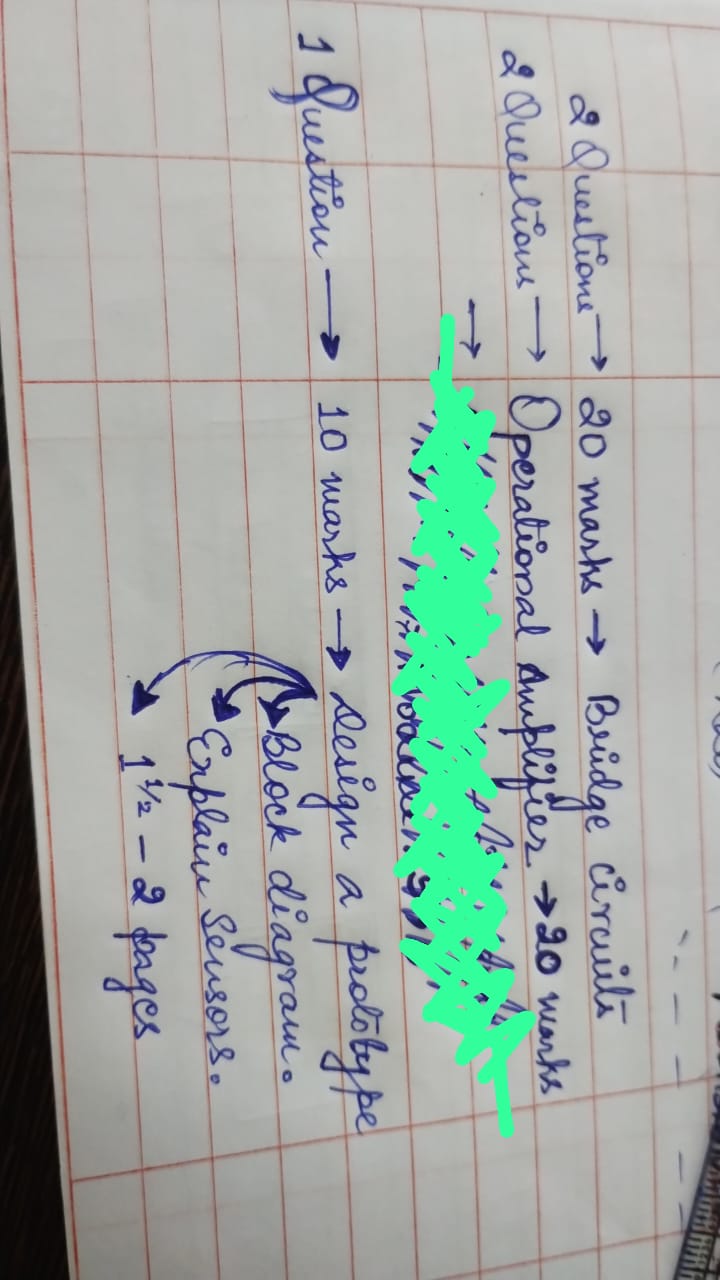 2 Questions → 20 marks → Bridge circuits
2 Questions → Operational Amplifier → 20 marks
→
1 Question → 10 marks → Design a prototype
Block diagram.
Explain Sensors.
1 1/2 - 2 pages